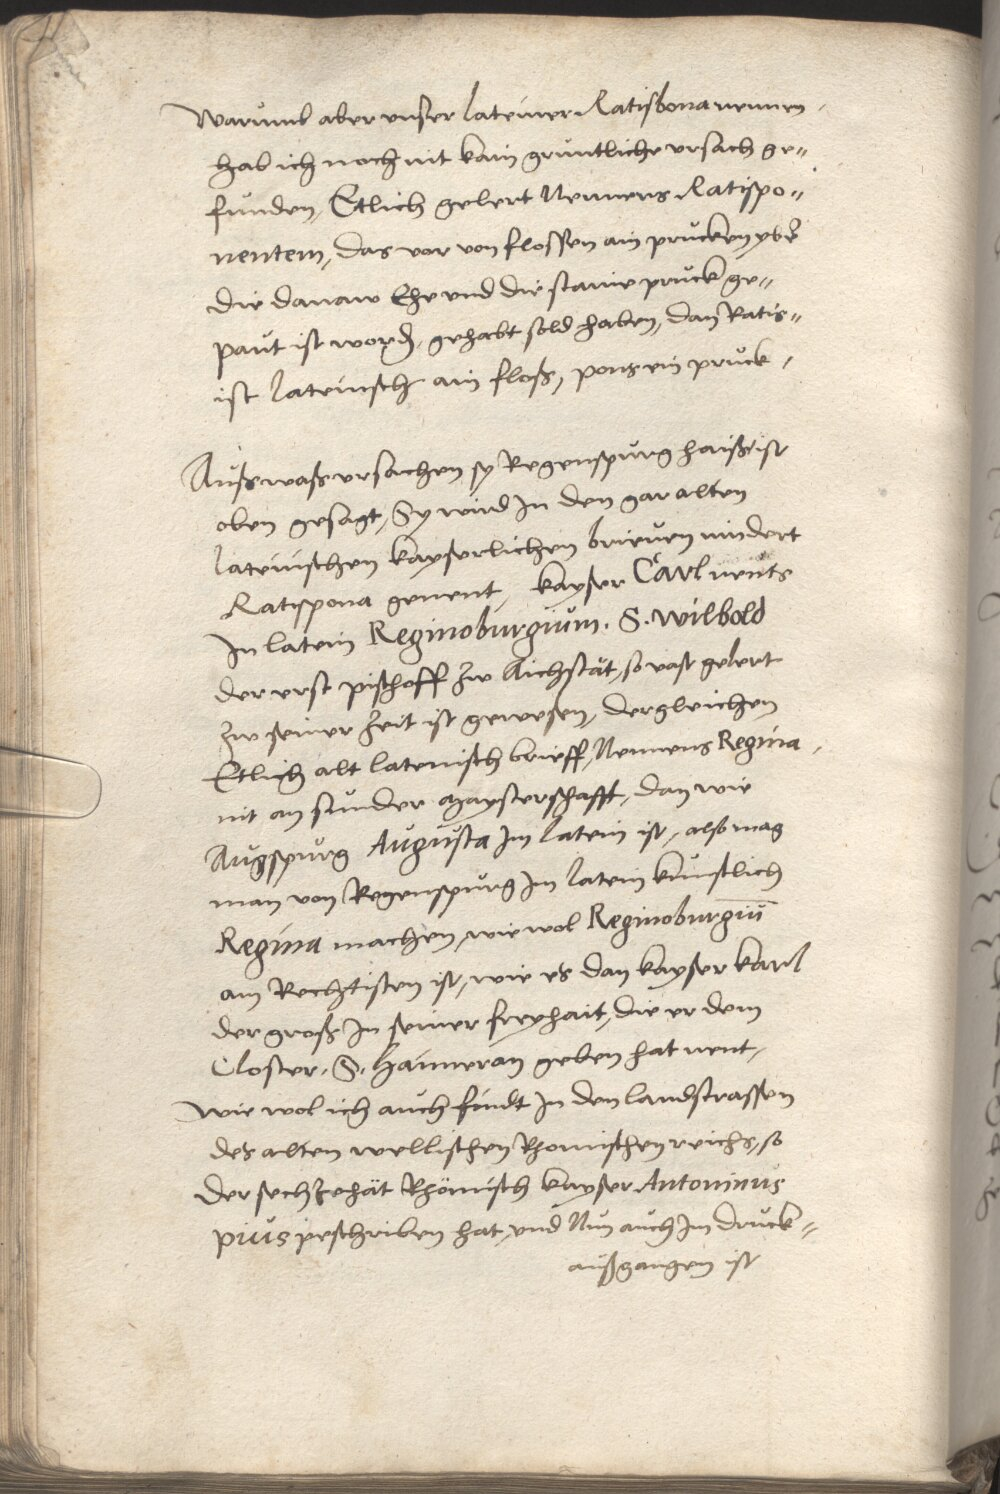 Warumb aber unser lateiner Ratisbona nennen,
hab ich noch nit kain gruntliche ursach ge„
funden, Etlich gelert Nennens Ratispo„
nentem, das vor von flossen ain prucken yber
die danaw Ehe und die staine pruck ge„
paut ist word, gehabt sold haben, dan Ratis„
ist lateinisch ain floß, pons ein pruck,
Auß waß ursachen sy Regenspurg haißt ist
oben gesagt, Sy wird In den gar alten
lateinischen kayserlichen brieven nindert
Ratispona genent, kayser Carl nents
In latein Reginoburgium. S. Wilbold
der erst pischoff zw Aichstät, so vast gelert
zw seiner zeit ist gewesen, dergleichen
Etlich alt lateinisch brieff, Nennens Regina,
nit an sunder maysterschafft, dan wie
Augspurg Augusta Im latein ist, also mag
man von Regenspurg Im latein kunstlich
Regina machen, wie wol Reginoburgiū
am Rechtisten ist, wie es dan kayser karl
der groß In seiner freyhait, die er dem
Closter. S. Haimeran geben hat nent,
Wie wol ich auch findt In den landstrassen
des alten wellischen Rhomischen reichs, so
der sechzehät Rhömisch kayser Antoninus
pius peschriben hat, und Nun auch Im druck„
außgangen ist